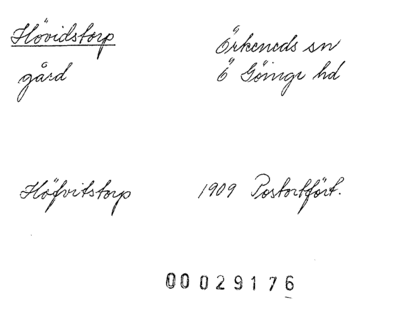 Hövidstorp Örkeneds sn
gård Ö Göinge hd
Höfvitstorp 1909 Postortfört.
00029176